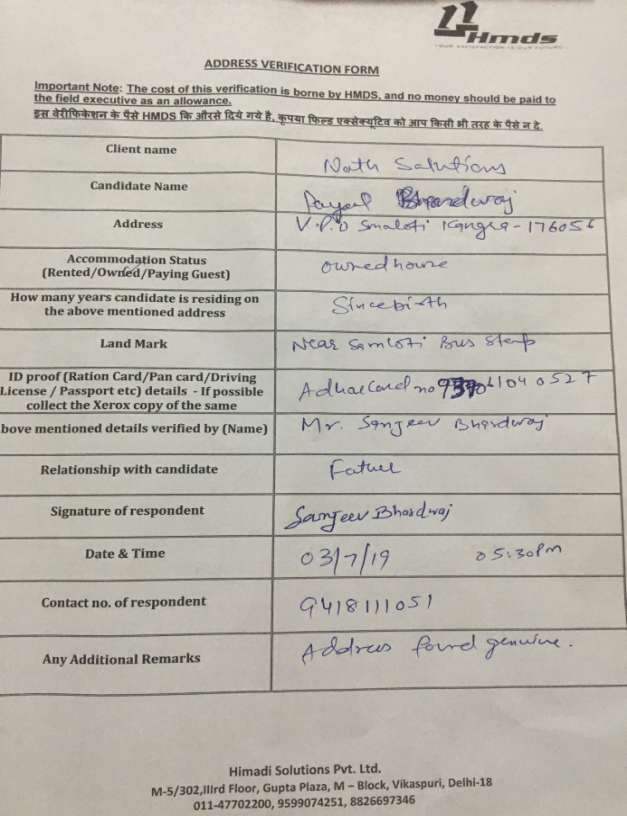 Hmds
ADDRESS VERIFICATION FORM
Important Note: The cost of this verification is borne by HMDS, and no money should be paid to
the field executive as an allowance.
इस वेरीफिकेशन के पैसे HMDS कि औरसे दिये गये है, कृपया फिल्ड एक्सेक्यूटिव को आप किसी भी तरह के पैसे न दे.
Client name
Nath Salutions
Candidate Name
Payal Bhardwaj
Address
V.P.O Smaloti Kangra-176056
Accommodation Status
(Rented/Owned/Paying Guest)
owned house
How many years candidate is residing on
the above mentioned address
Since birth
Land Mark
Near Samloti Bus Stamp
ID proof (Ration Card/Pan card/Driving
License / Passport etc) details - If possible
collect the Xerox copy of the same
Adhar Card no
bove mentioned details verified by (Name)
Mr. Sanjeev Bhardwaj
Relationship with candidate
Father
Signature of respondent
Sanjeev Bhardwaj
Date & Time
03/7/19 05:30Pm
Contact no. of respondent
9418111051
Any Additional Remarks
Address found genuine.
Himadi Solutions Pvt. Ltd.
M-5/302,IIIrd Floor, Gupta Plaza, M – Block, Vikaspuri, Delhi-18
011-47702200, 9599074251, 8826697346